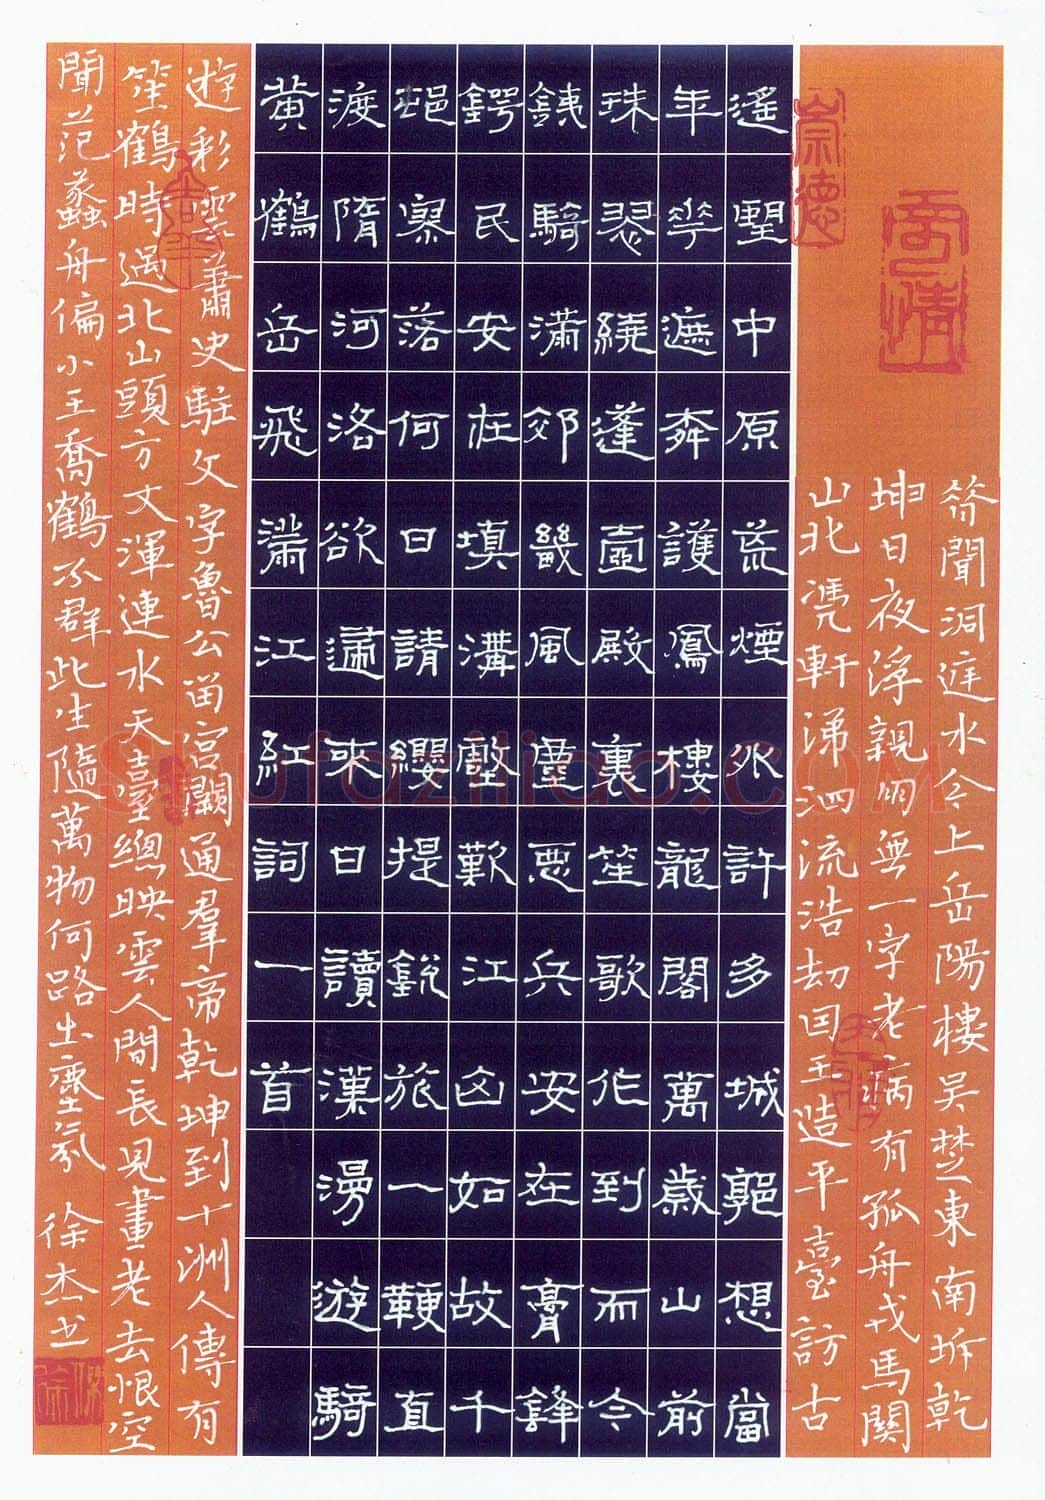 昔聞洞庭水今上岳陽樓吳楚東南坼乾
坤日夜浮親朋無一字老病有孤舟戎馬關
山北憑軒涕泗流浩劫因王造平臺訪古
遙望中原荒煙外許多城郭想當
年華遮奔護鳳樓龍閣萬歲山前
珠翠繞蓬壺殿裏笙歌作到而今
銕騎滿郊畿風塵惡兵安在膏鋒
鍔民安在填溝壑歎江山如故千
邨寥落何日請纓提銳旅一鞭直
渡隋河洛欲遄來日讀漢漫遊騎
黃鶴岳飛滿江紅詞一首
遊彩雲蕭史駐文字魯公留宮闕通羣帝乾坤到十洲人傳有
笙鶴時過北山頭方丈渾連水天臺總映雲人間長見畫老去恨空
聞范蠡舟偏小王喬鶴不群此生隨萬物何路出塵氛 徐杰书
崇德
Shufaziliao.com